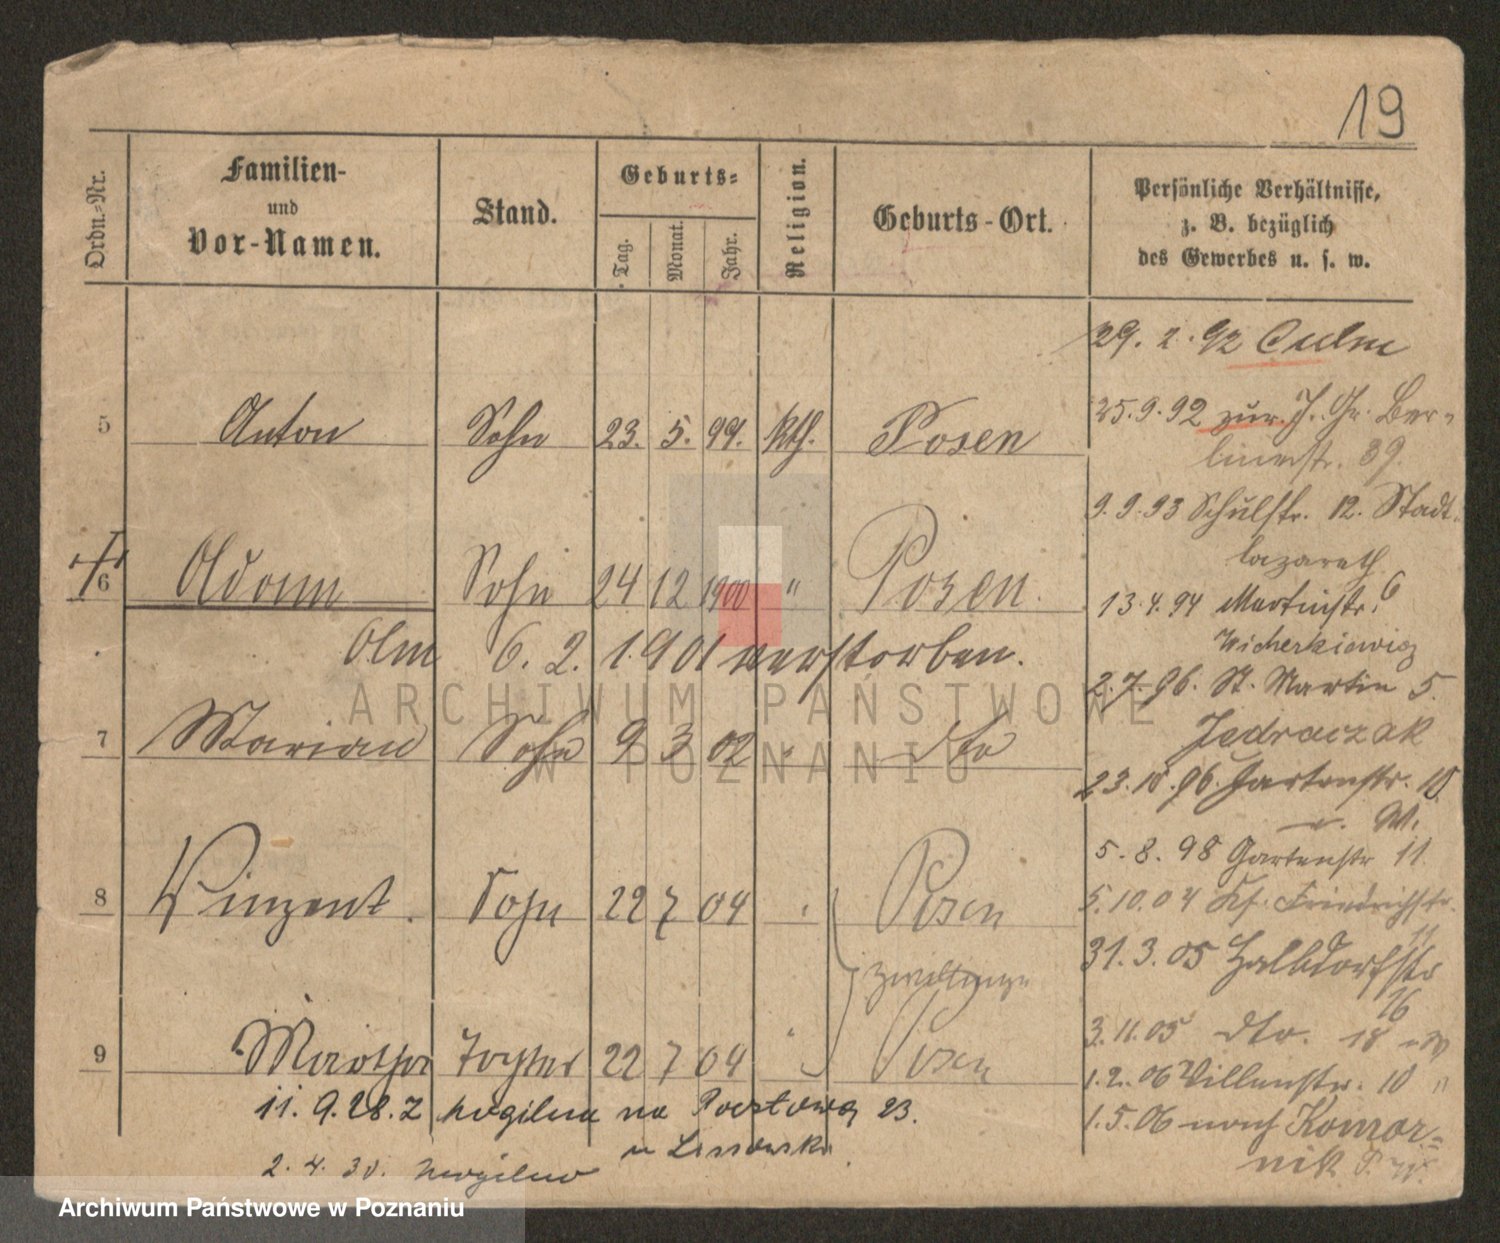 19
Ordn.-Nr.
Familien-
und
Vor-Namen.
Stand.
Geburts-
Tag.
Monat.
Jahr.
Religion.
Geburts-Ort.
Persönliche Verhältnisse,
z. B. bezüglich
des Gewerbes u. s. w.
29. 2. 92 Culm
5 Anton Sohn 23. 5. 99. kth. Posen
25. 9. 92 zur. Ber-
linerstr. 39.
9. 9. 93 Schulstr. 12. Stadt-
lazareth
6 Adam Sohn 24 12 1900 " Posen.
13. 4. 94 Martinstr. 6
Wicherkiewicz
Am 6. 2. 1901 verstorben.
2. 7. 96. St. Martin 5.
Jedraczak
7 Marian Sohn 9 3 02 " dto
23. 10. 96. Gartenstr. 10
W.
5. 8. 98 Gartenstr 11
8 Vinzent. Sohn 22 7 04 " Posen
5. 10. 04 Friedrichstr.
11
31. 3. 05 Halbdorfstr
16
Zwillinge
3. 11. 05 dto. 18
9 Martha Tochter 22 7 04 " Posen
1. 2. 06 Villenstr. 10 "
11. 9. 28. Z Mogilna na Pocztową 23.
1. 5. 06 nach Komor-
nik
u Lissowski
2. 4. 30. Mogilno
ARCHIWUM PAŃSTWOWE
W POZNANIU
Archiwum Państwowe w Poznaniu